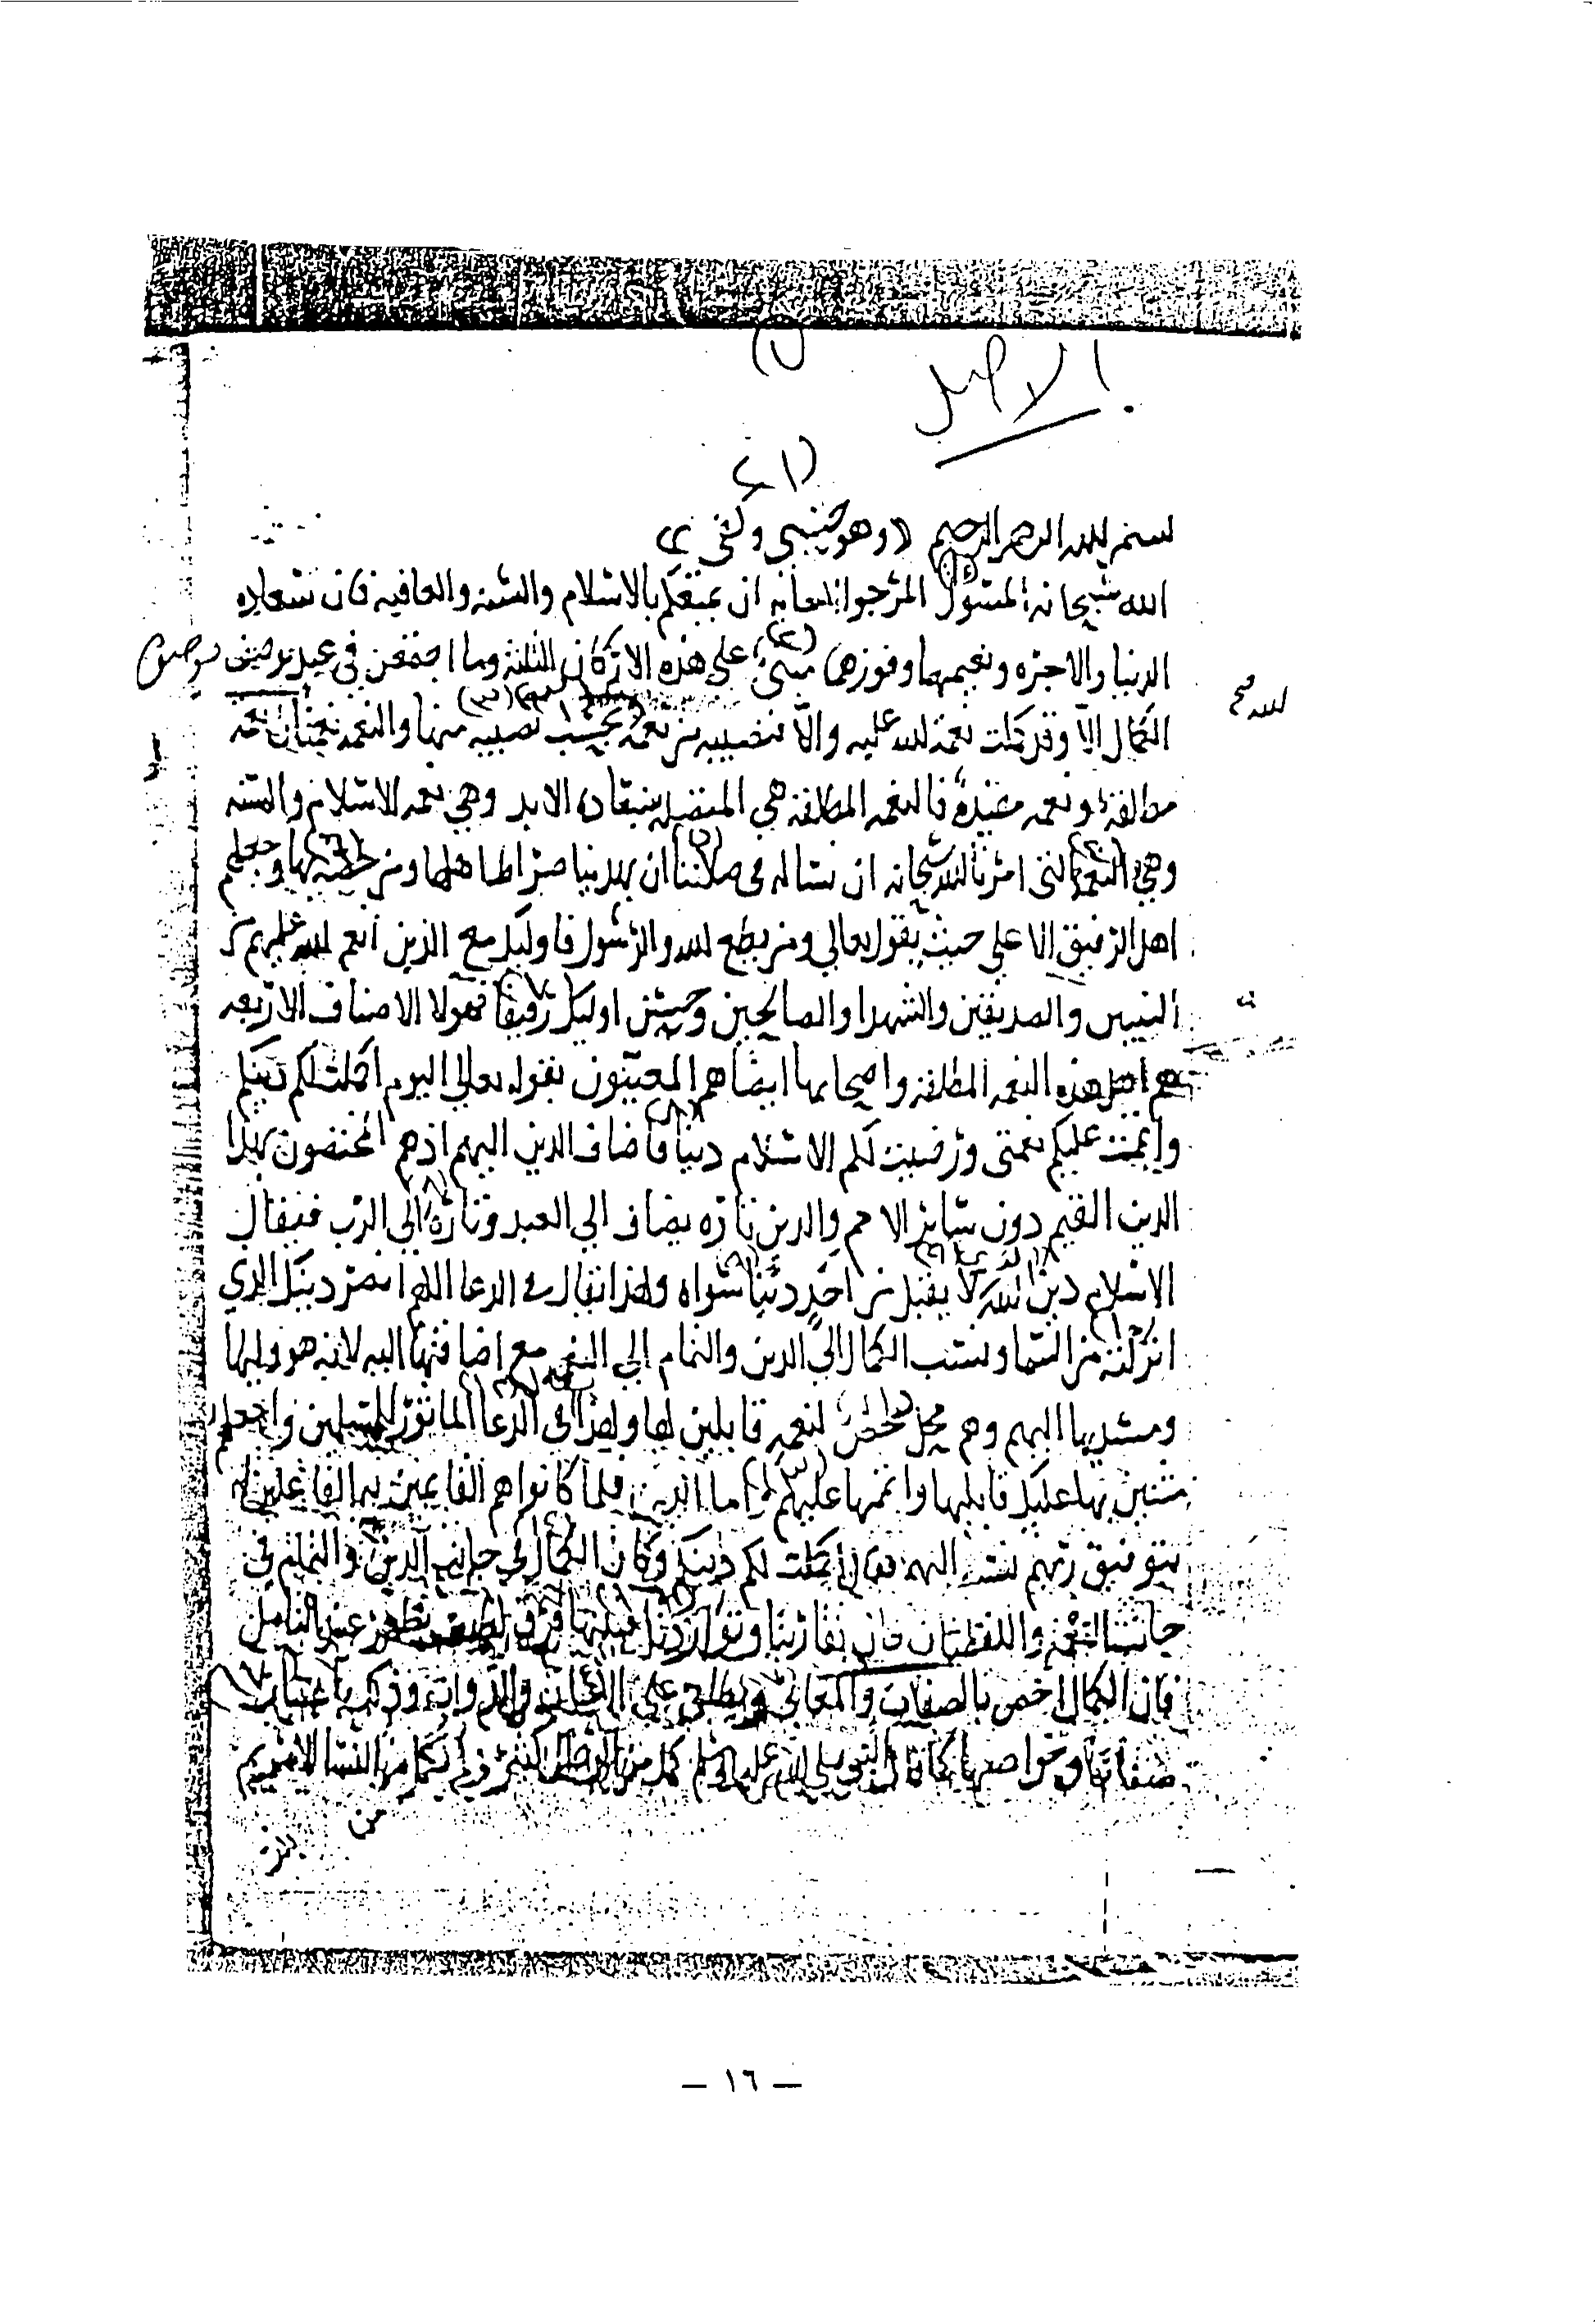 الاصل
بسم الله الرحمن الرحيم وهو حسبي وكفى
الله سبحانه المسئول المرجو الاجابه ان يمتعكم بالاسلام والسنه والعافيه فان سعاده
الدنيا والاخره ونعيمهما وفوزهما مبنى على هذه الاركان الثلثة وما اجتمعن في عبد بوصف
الكمال الا وقد كملت نعمة الله عليه والا فنصيبه من نعمة الله بحسب نصيبه منها والنعمه نعمتان نعمه
مطلقة ونعمه مقيدة فالنعمه المطلقه هي المتصله بسعاده الابد وهي نعمه الاسلام والسنه
وهي النعمه التي امرنا الله سبحانه ان نساله في صلاتنا ان يهدينا صراط اهلها ومن خصه بها وجعلهم
اهل الرفيق الاعلى حيث يقول تعالى ومن يطع الله والرسول فاوليك مع الذين انعم الله عليهم من
النبيين والصديقين والشهدا والصالحين وحسن اوليك رفيقا فهولا الاصناف الاربعه
هم اهل هذه النعمه المطلقه واصحابها ايضا هم المعينون بقوله تعالى اليوم اكملت لكم دينكم
واتممت عليكم نعمتي ورضيت لكم الاسلام دينا فاضاف الدين اليهم اذ هم المختصون بهذا
الدين القيم دون ساير الامم والدين تاره يضاف الي العبد وتارة الي الرب فيقال
الاسلام دين الله لا يقبل من احد دينا سواه ولهذا يقال في الدعا اللهم انصر دينك الذي
انزلته من السما ونسب الكمال الي الدين والتمام الي النعمه مع اضافتها اليه لانه هو وليها
ومسديها اليهم وهم محل محض لنعمه قابلين لها ولهذا في الدعا الماثور للمسلمين واجعلهم
مثنين بها عليك قابليها واتممها عليهم واما الدين فلما كانوا هم القايمين به الفاعلين له
بتوفيق ربهم نسبه اليهم فقال اكملت لكم دينكم وكان الكمال في جانب الدين والتمام في
جانب النعمة واللفظتان وان تقاربتا وتواردتا فبينهما فرق لطيف يظهر عند التامل
فان الكمال اخص بالصفات والمعاني ويطلق على الاعيان والذوات وذلك باعتبار
صفاتها وخواصها كما قال النبي صلى الله عليه وسلم كمل من الرجال كثير ولم يكمل من النسا الا مريم
– ١٦ –